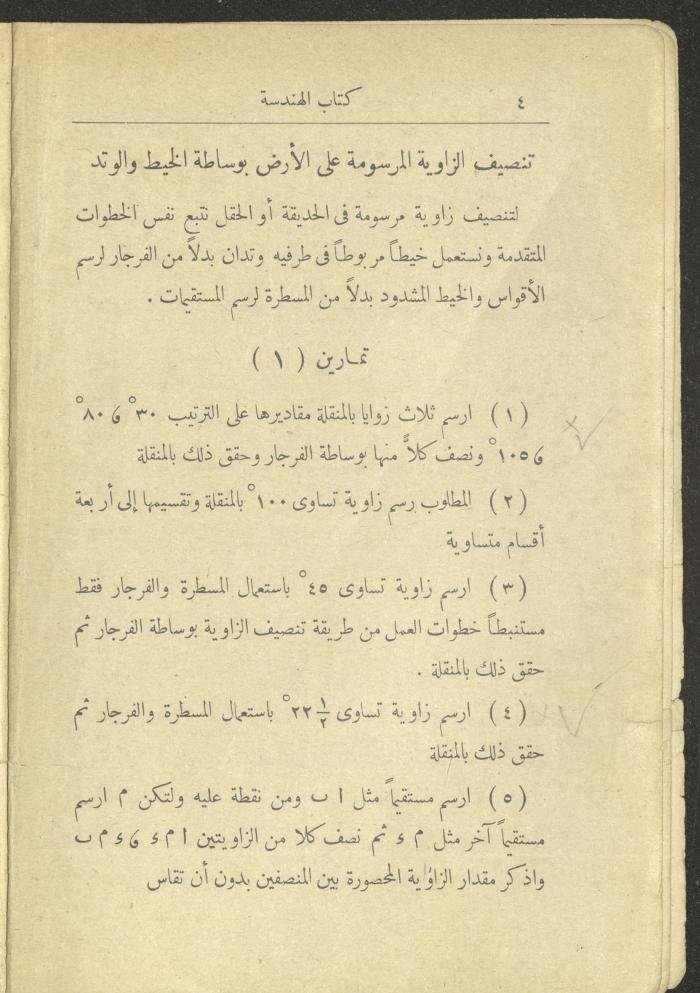 ٤
كتاب الهندسة
تنصيف الزاوية المرسومة على الأرض بوساطة الخيط والوتد
لتنصيف زاوية مرسومة فى الحديقة أو الحقل نتبع نفس الخطوات
المتقدمة ونستعمل خيطاً مربوطاً فى طرفيه وتدان بدلاً من الفرجار لرسم
الأقواس والخيط المشدود بدلاً من المسطرة لرسم المستقيمات .
تمارين ( ١ )
( ١ ) ارسم ثلاث زوايا بالمنقلة مقاديرها على الترتيب ٣٠° ٯ ٨٠°
ٯ ١٠٥° ونصف كلاًّ منها بوساطة الفرجار وحقق ذلك بالمنقلة
( ٢ ) المطلوب رسم زاوية تساوى ١٠٠° بالمنقلة وتقسيمها إلى أربعة
أقسام متساوية
( ٣ ) ارسم زاوية تساوى ٤٥° باستعمال المسطرة والفرجار فقط
مستنبطاً خطوات العمل من طريقة تنصيف الزاوية بوساطة الفرجار ثم
حقق ذلك بالمنقلة .
( ٤ ) ارسم زاوية تساوى ٢٢ ١/٢° باستعمال المسطرة والفرجار ثم
حقق ذلك بالمنقلة
( ٥ ) ارسم مستقيماً مثل ا ب ومن نقطة عليه ولتكن م ارسم
مستقيماً آخر مثل م ء ثم نصف كلا من الزاويتين ا م ء ٯ ء م ب
واذكر مقدار الزاوية المحصورة بين المنصفين بدون أن تقاس